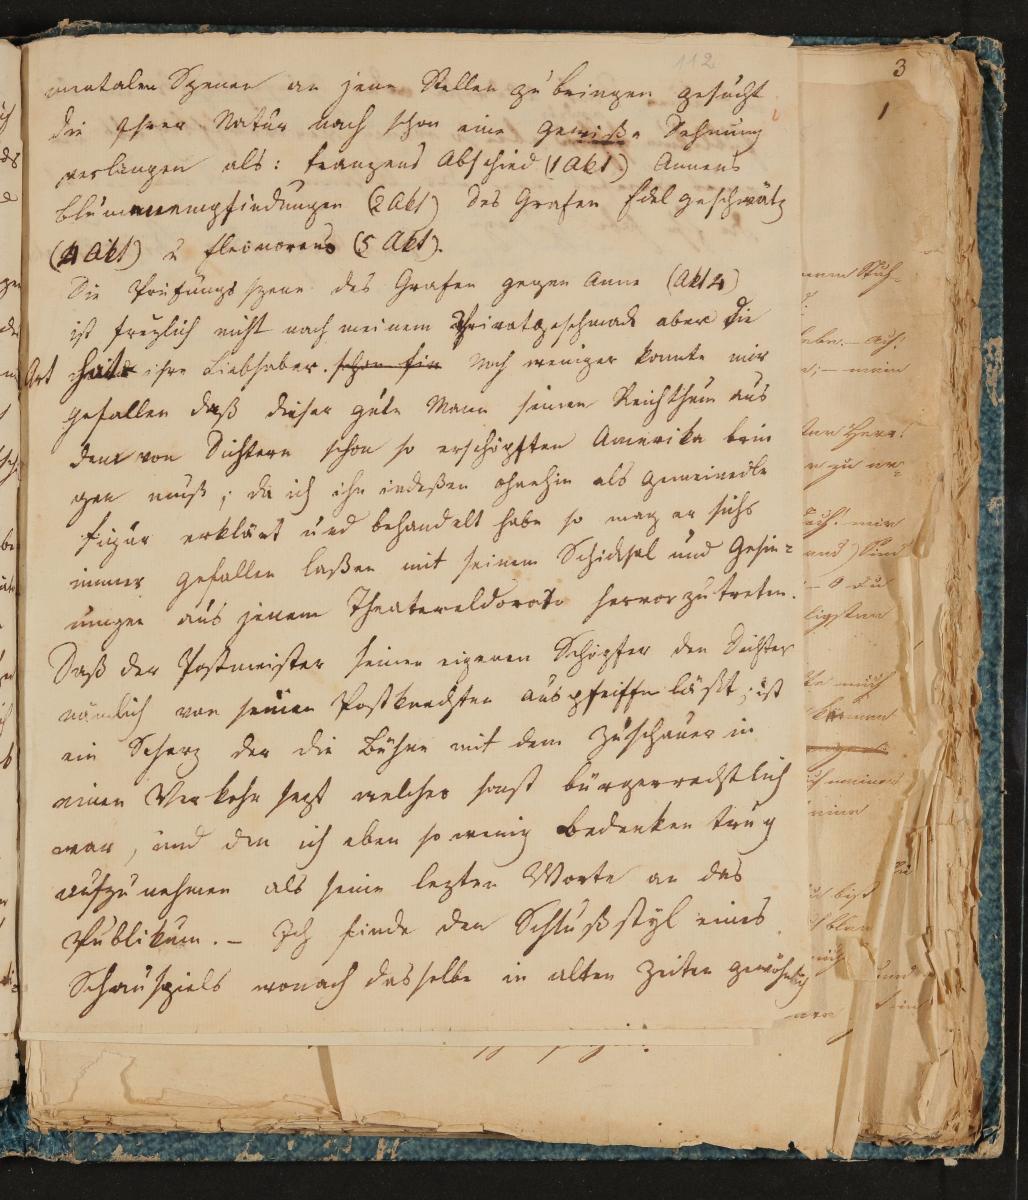 112
3
1
mentalen Szenen an jene Stellen zu bringen gesucht
die Ihrer Natur nach schon eine gewiße Dehnung
verlangen als: Franzens Abschied (1 Akt) Annens
Blumenempfindungen (2 Akt) des Grafen Edelgeschwätz
(4 Akt) u Eleonorens (5 Akt).
Die Prüfungsszene des Grafen gegen Anne (Akt 4)
ist freylich nicht nach meinem Privatgeschmack aber die
Art hat ihre Liebhaber. schon Noch weniger konnte mir
gefallen daß dieser gute Mann seinen Reichthum aus
dem von Dichtern schon so erschöpften Amerika brin
gen muß; da ich ihn indeßen ohnehin als gemeinedle
Figur erklärt und behandelt habe so mag er sichs
immer gefallen laßen mit seinem Schicksal und Gesin=
nungen aus jenem Theatereldorado hervorzutreten.
Daß der Postmeister seinen eigenen Schöpfer den Dichter
nämlich von seinen Postknechten auspfeiffen läßt, ist
ein Scherz der die Bühne mit dem Zuschauer in
einen Verkehr sezt welcher sonst bürgerrechtlich
war, und den ich eben so wenig Bedenken trug
aufzunehmen als seine lezten Worte an das
Publikum. – Ich finde den Schlußstyl eines
Schauspiels wonach dasselbe in alten Zeiten gewöhnlich